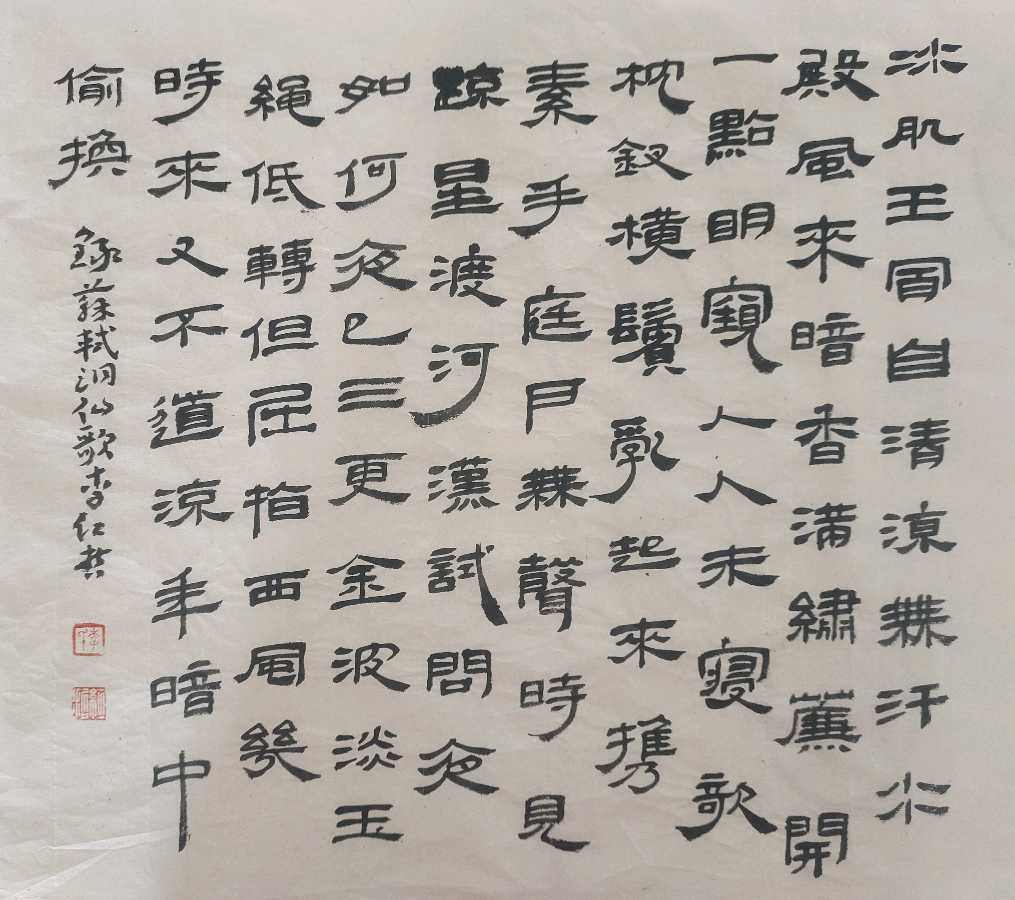 冰肌玉骨自清涼無汗水
殿風來暗香滿繡簾開
一點明窺人人未寢欹
枕釵橫鬢亂起來攜
素手庭戶無聲時見
疏星渡河漢試問夜
如何夜已三更金波淡玉
繩低轉但屈指西風幾
時來又不道流年暗中
偷換
錄蘇軾洞仙歌李仁哲